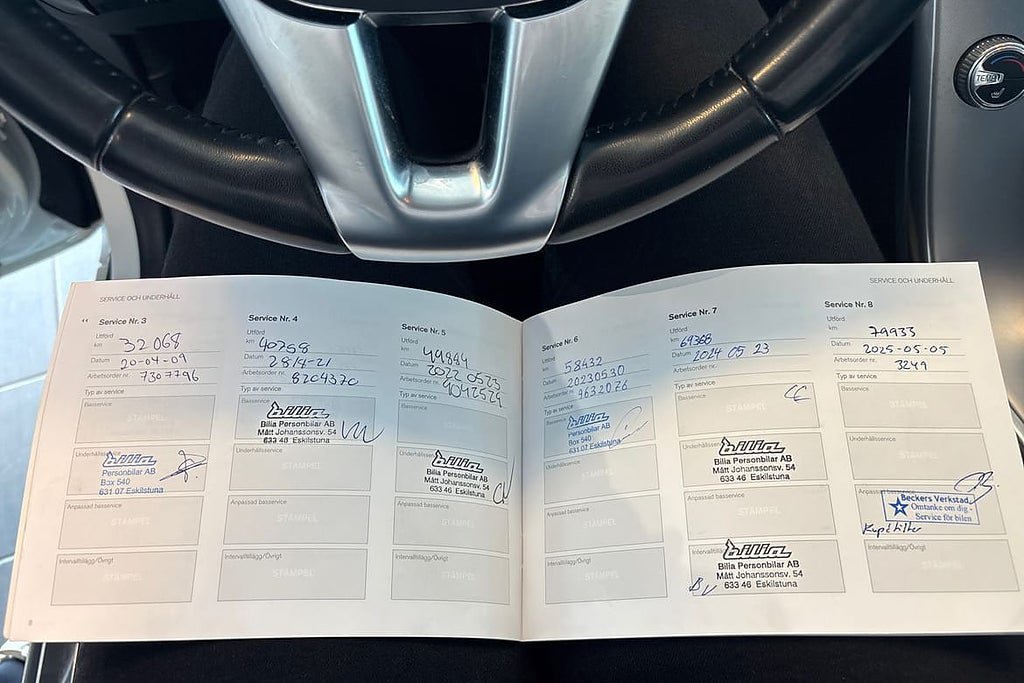 SERVICE OCH UNDERHÅLL
Service Nr. 3
Utförd
km 32 068
Datum 20-04-09
Arbetsorder nr. 7307796
Typ av service
Basservice
STÄMPEL
Underhållsservice
bilia
Personbilar AB
Box 540
631 07 Eskilstuna
Anpassad basservice
STÄMPEL
Intervalltillägg/Övrigt
STÄMPEL
8
Service Nr. 4
Utförd
km 40758
Datum 28/4-21
Arbetsorder nr. 8204370
Typ av service
bilia
Bilia Personbilar AB
Mått Johanssonsv. 54
633 46 Eskilstuna
Underhållsservice
STÄMPEL
Anpassad basservice
STÄMPEL
Intervalltillägg/Övrigt
STÄMPEL
Service Nr. 5
Utförd
km 49844
Datum 2022 0523
Arbetsorder nr. 9042529
Typ av service
Basservice
STÄMPEL
Underhållsservice
bilia
Bilia Personbilar AB
Mått Johanssonsv. 54
633 46 Eskilstuna
Anpassad basservice
STÄMPEL
Intervalltillägg/Övrigt
STÄMPEL
Service Nr. 6
Utförd
km 58432
Datum 20230530
Arbetsorder nr. 9632076
Typ av service
Basservice
bilia
Personbilar AB
Box 540
631 07 Eskilstuna
Underhållsservice
STÄMPEL
Anpassad basservice
STÄMPEL
Intervalltillägg/Övrigt
STÄMPEL
Service Nr. 7
Utförd
km 69368
Datum 2024 05 23
Arbetsorder nr.
Typ av service
Basservice
STÄMPEL
Underhållsservice
bilia
Bilia Personbilar AB
Mått Johanssonsv. 54
633 46 Eskilstuna
Anpassad basservice
STÄMPEL
Intervalltillägg
bilia
Bilia Personbilar AB
Mått Johanssonsv. 54
633 46 Eskilstuna
SERVICE OCH UNDERHÅLL
Service Nr. 8
Utförd
km 79933
Datum 2025-05-05
Arbetsorder nr. 3249
Typ av service
Basservice
STÄMPEL
Underhållsservice
STÄMPEL
Anpassad basservice
Beckers Verkstad
Omtanke om dig -
Service för bilen
Kupéfilter
Intervalltillägg/Övrigt
STÄMPEL
TEMP